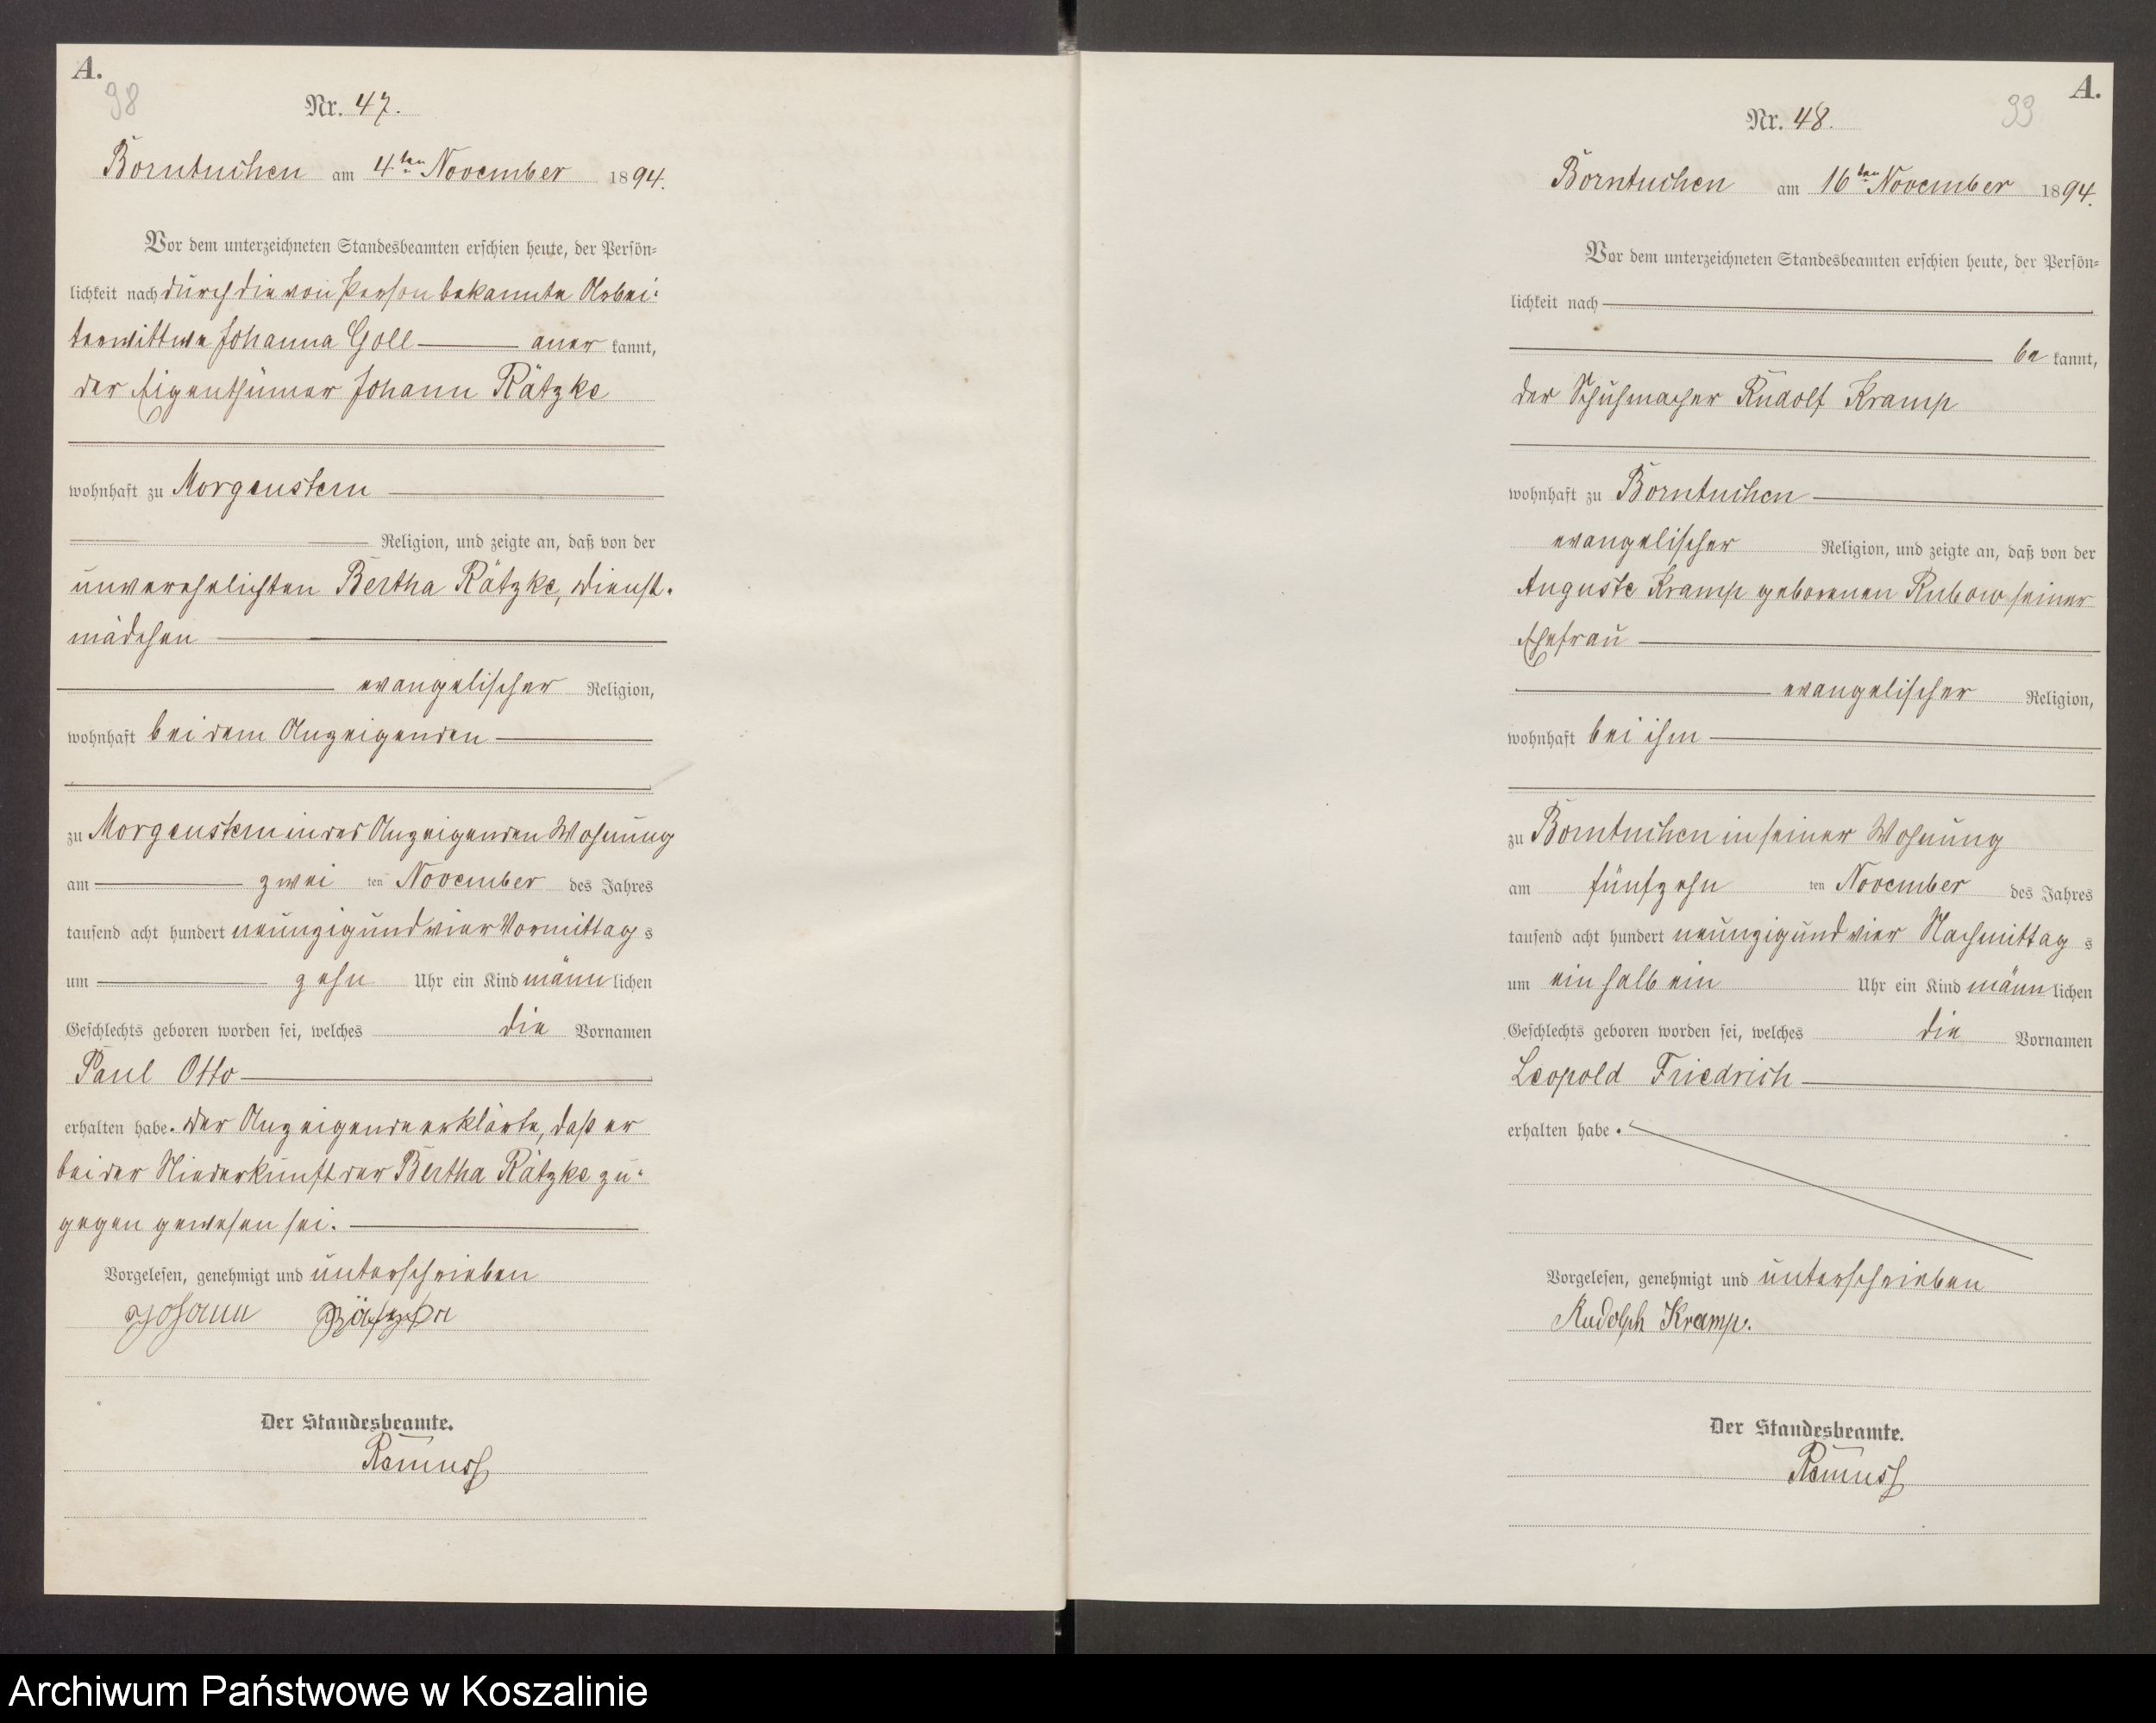 A.
98
Nr. 47.
Borntuchen am 4ten November 1894.
Vor dem unterzeichneten Standesbeamten erschien heute, der Persön=
lichkeit nach durch die von Person bekannte Arbei=
terwittwe Johanna Goll aner kannt,
der Eigenthümer Johann Rätzke
wohnhaft zu Morgenstern
Religion, und zeigte an, daß von der
unverehelichten Bertha Rätzke, Dienst=
mädchen
evangelischer Religion,
wohnhaft bei dem Anzeigenden
zu Morgenstern in des Anzeigenden Wohnung
am zwei ten November des Jahres
tausend acht hundert neunzig und vier Vormittag s
um zehn Uhr ein Kind männ lichen
Geschlechts geboren worden sei, welches die Vornamen
Paul Otto
erhalten habe. Der Anzeigende erklärte, daß er
bei der Niederkunft der Bertha Rätzke zu=
gegen gewesen sei.
Vorgelesen, genehmigt und unterschrieben
Johann Rätzke
Der Standesbeamte.
Remuss
A.
99
Nr. 48.
Borntuchen am 16ten November 1894.
Vor dem unterzeichneten Standesbeamten erschien heute, der Persön=
lichkeit nach
be kannt,
der Schuhmacher Rudolf Kramp
wohnhaft zu Borntuchen
evangelischer Religion, und zeigte an, daß von der
Auguste Kramp geborenen Rubow seiner
Ehefrau
evangelischer Religion,
wohnhaft bei ihm
zu Borntuchen in seiner Wohnung
am fünfzehn ten November des Jahres
tausend acht hundert neunzig und vier Nachmittag s
um ein halb ein Uhr ein Kind männ lichen
Geschlechts geboren worden sei, welches die Vornamen
Leopold Friedrich
erhalten habe.
Vorgelesen, genehmigt und unterschrieben
Rudolph Kramp.
Der Standesbeamte.
Remuss
Archiwum Państwowe w Koszalinie